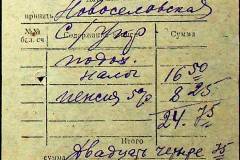 принять
Новоселовская
№№
бал. сч.
Содержание
Сумма
подох.
налог 16 50
пенсия 5 р 8 25
24 75
сумма Двадцать четыре 75